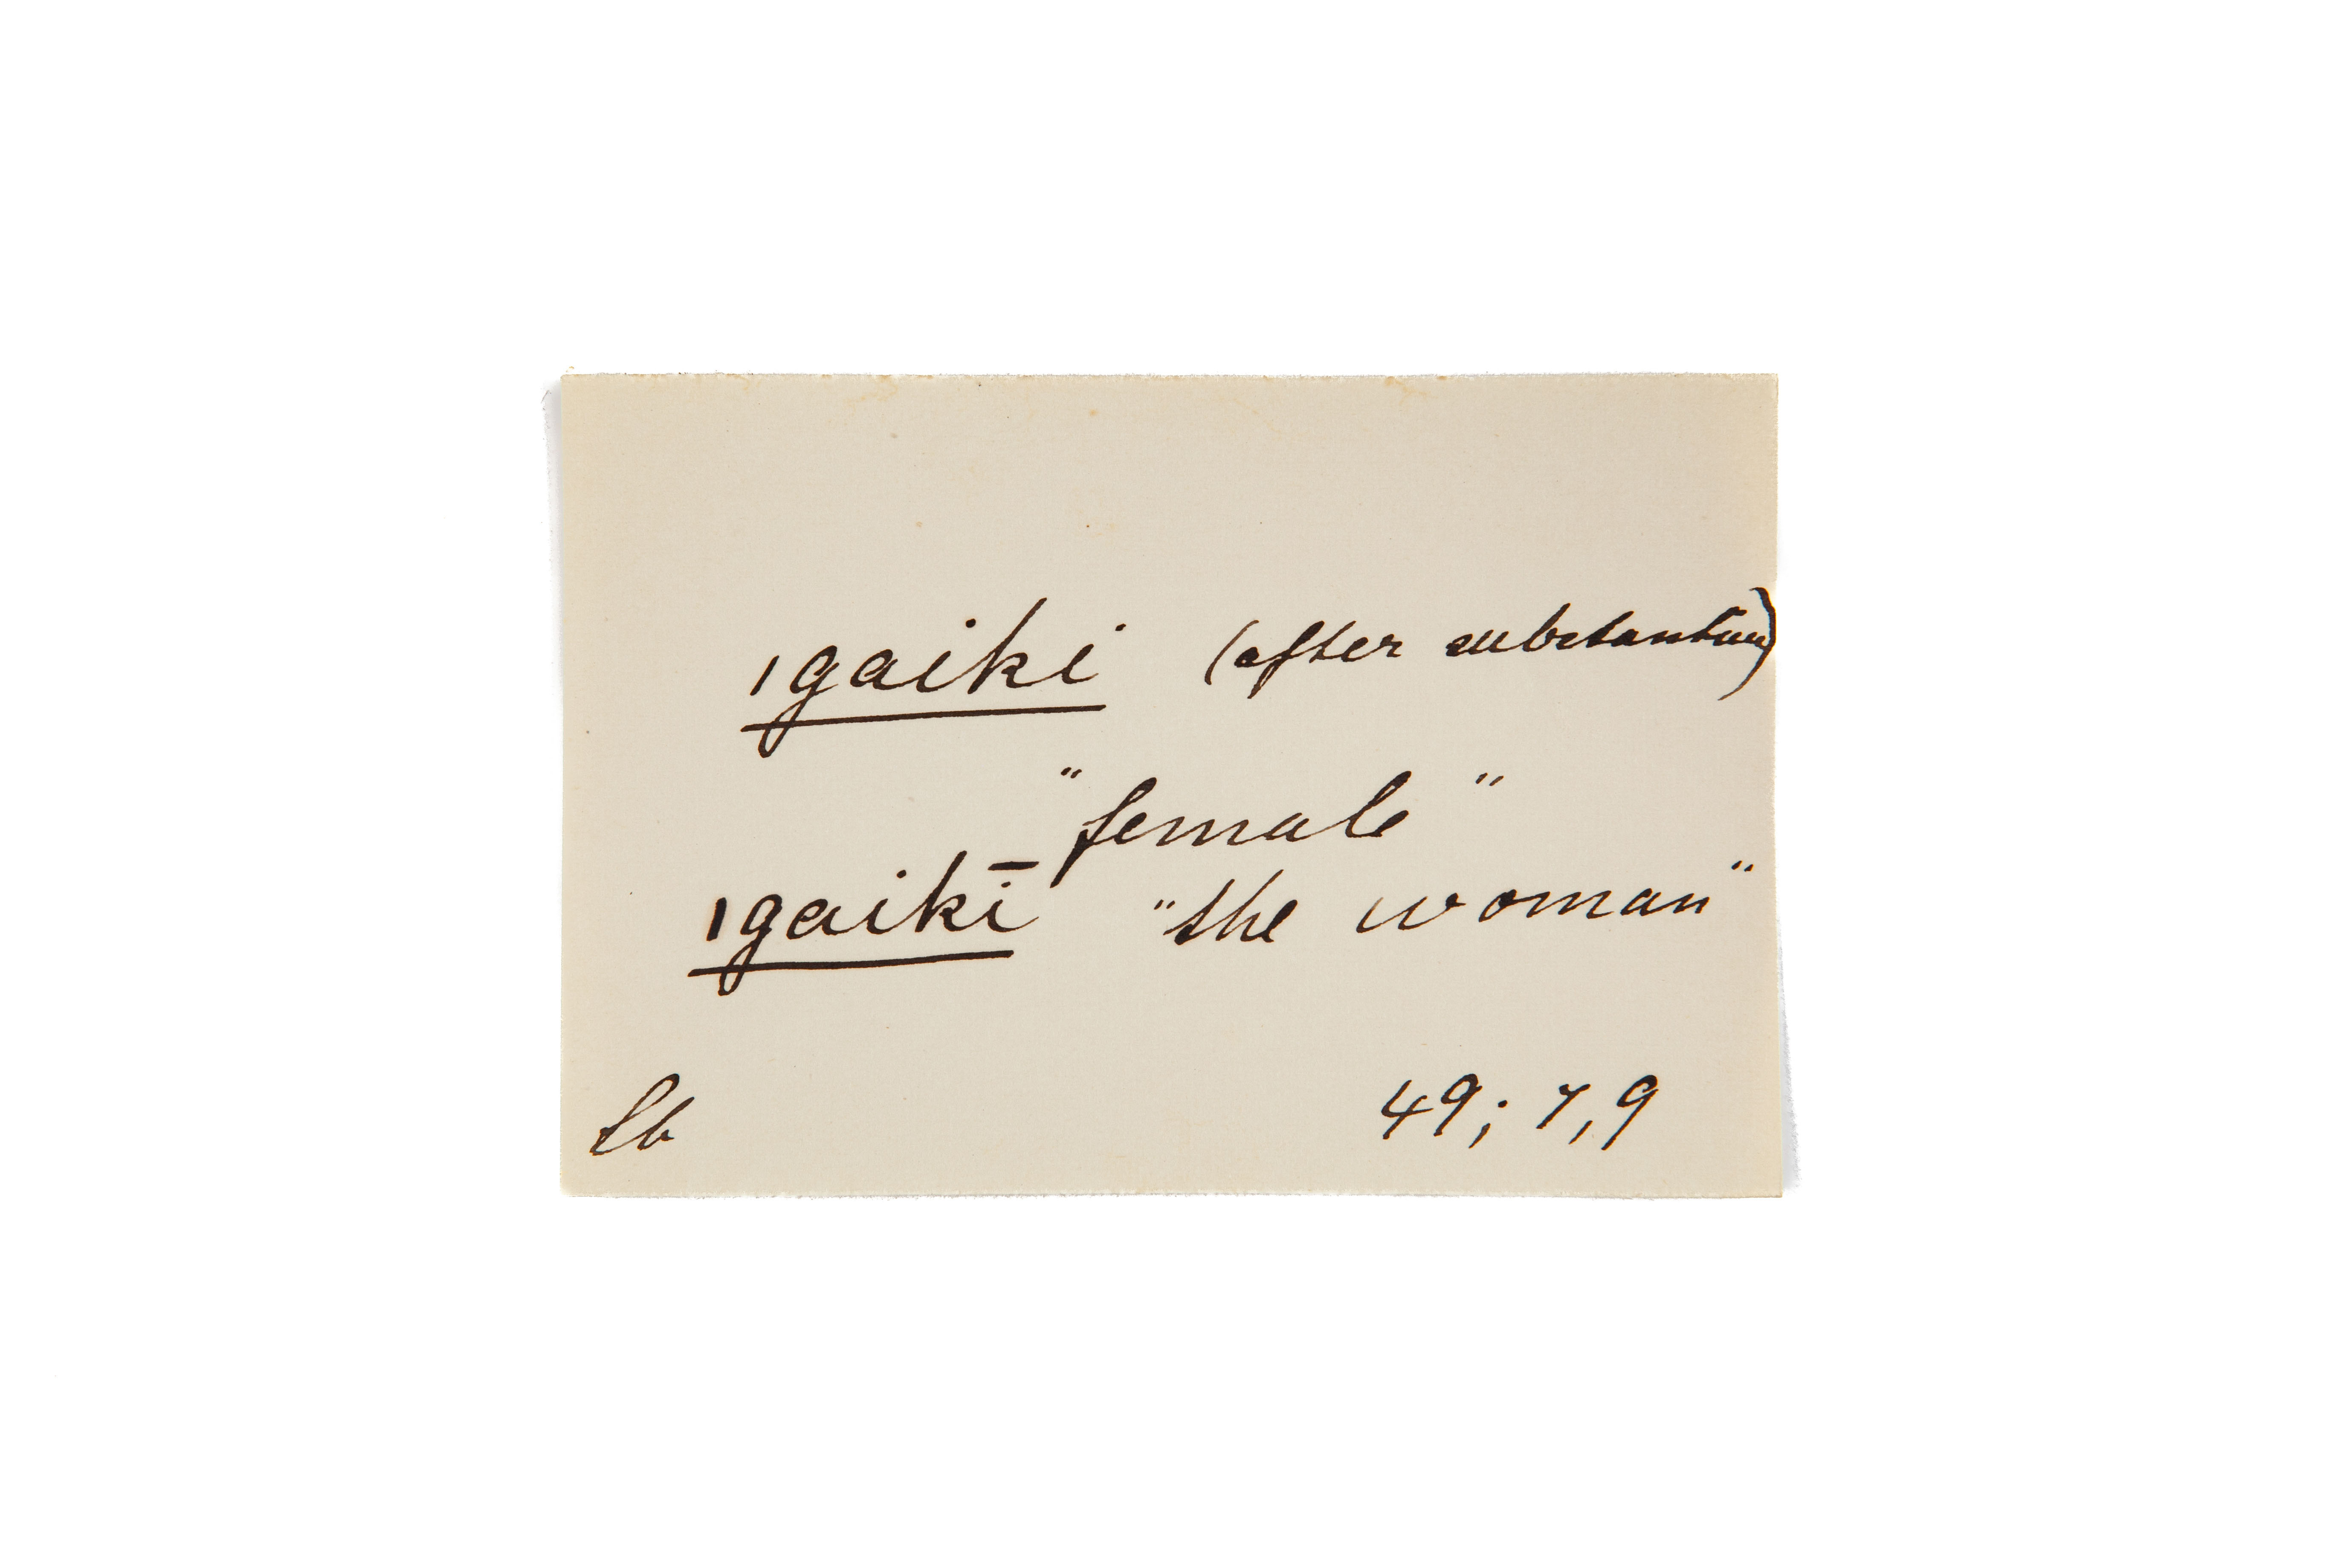 ǀgaiki (after substantive)
"female"
ǀgaikī "the woman"
Lb 49; 7, 9